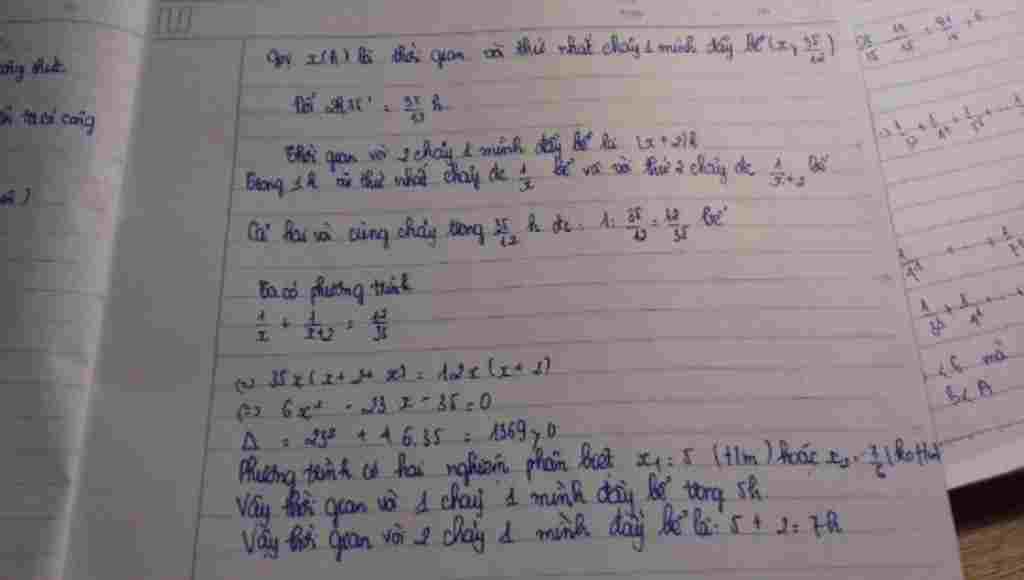 ta có công
Gọi x(h) là thời gian vòi thứ nhất chảy 1 mình đầy bể (x > 35/12)
Đổi 2h35' = 35/12 h
Thời gian vòi 2 chảy 1 mình đầy bể là (x+2)h
Trong 1h vòi thứ nhất chảy đc 1/x bể và vòi thứ 2 chảy đc 1/x+2 bể
Cả hai vòi cùng chảy trong 35/12 h đc: 1: 35/12 = 12/35 bể
Ta có phương trình
1/x + 1/x+2 = 12/35
(=) 35x(x+2+x) = 12x(x+2)
(=) 6x² - 23x - 35 = 0
Δ = 23² + 4.6.35 = 1369 > 0
Phương trình có hai nghiệm phân biệt x₁ = 5 (t/m) hoặc x₂ = -7/6 (ko t/m)
Vậy thời gian vòi 1 chảy 1 mình đầy bể trong 5h
Vậy thời gian vòi 2 chảy 1 mình đầy bể là: 5 + 2 = 7h
< 6 mà
B < A